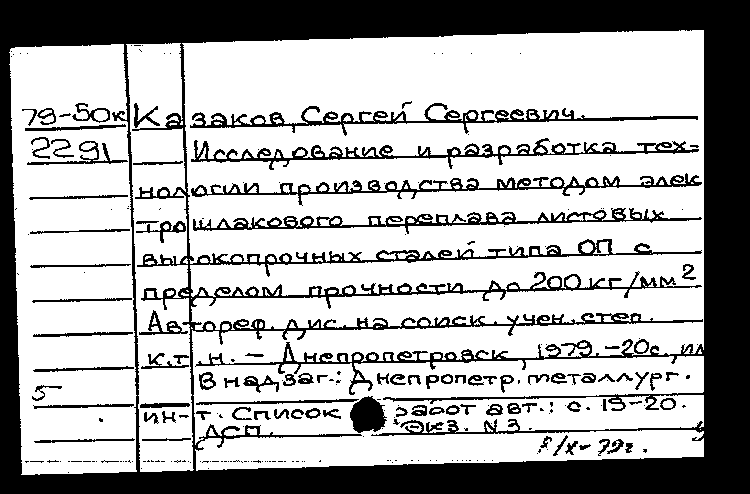 79-50к Казаков, Сергей Сергеевич.
2291 Исследование и разработка тех=
нологии производства методом элек
трошлакового переплава листовых
высокопрочных сталей типа ОП с
пределом прочности до 200 кг/мм2
Автореф. дис. на соиск. учен. степ.
к.т.н. - Днепропетровск, 1979. - 20с., ил
В надзаг.: Днепропетр. металлург.
5
ин-т. Список работ авт.: с. 19-20.
ДСП. Экз. N 3.